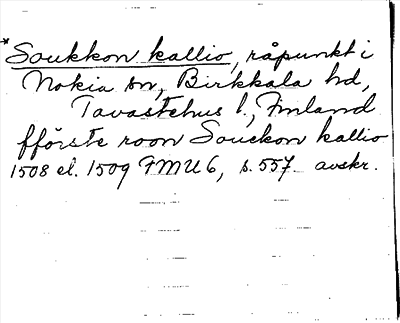 *Soukkon kallio, råpunkt i
Nokia sn, Birkkala hd,
Tavastehus l., Finland
fförste roon Souckon kallio
1508 el. 1509 FMU 6, s. 557 avskr.